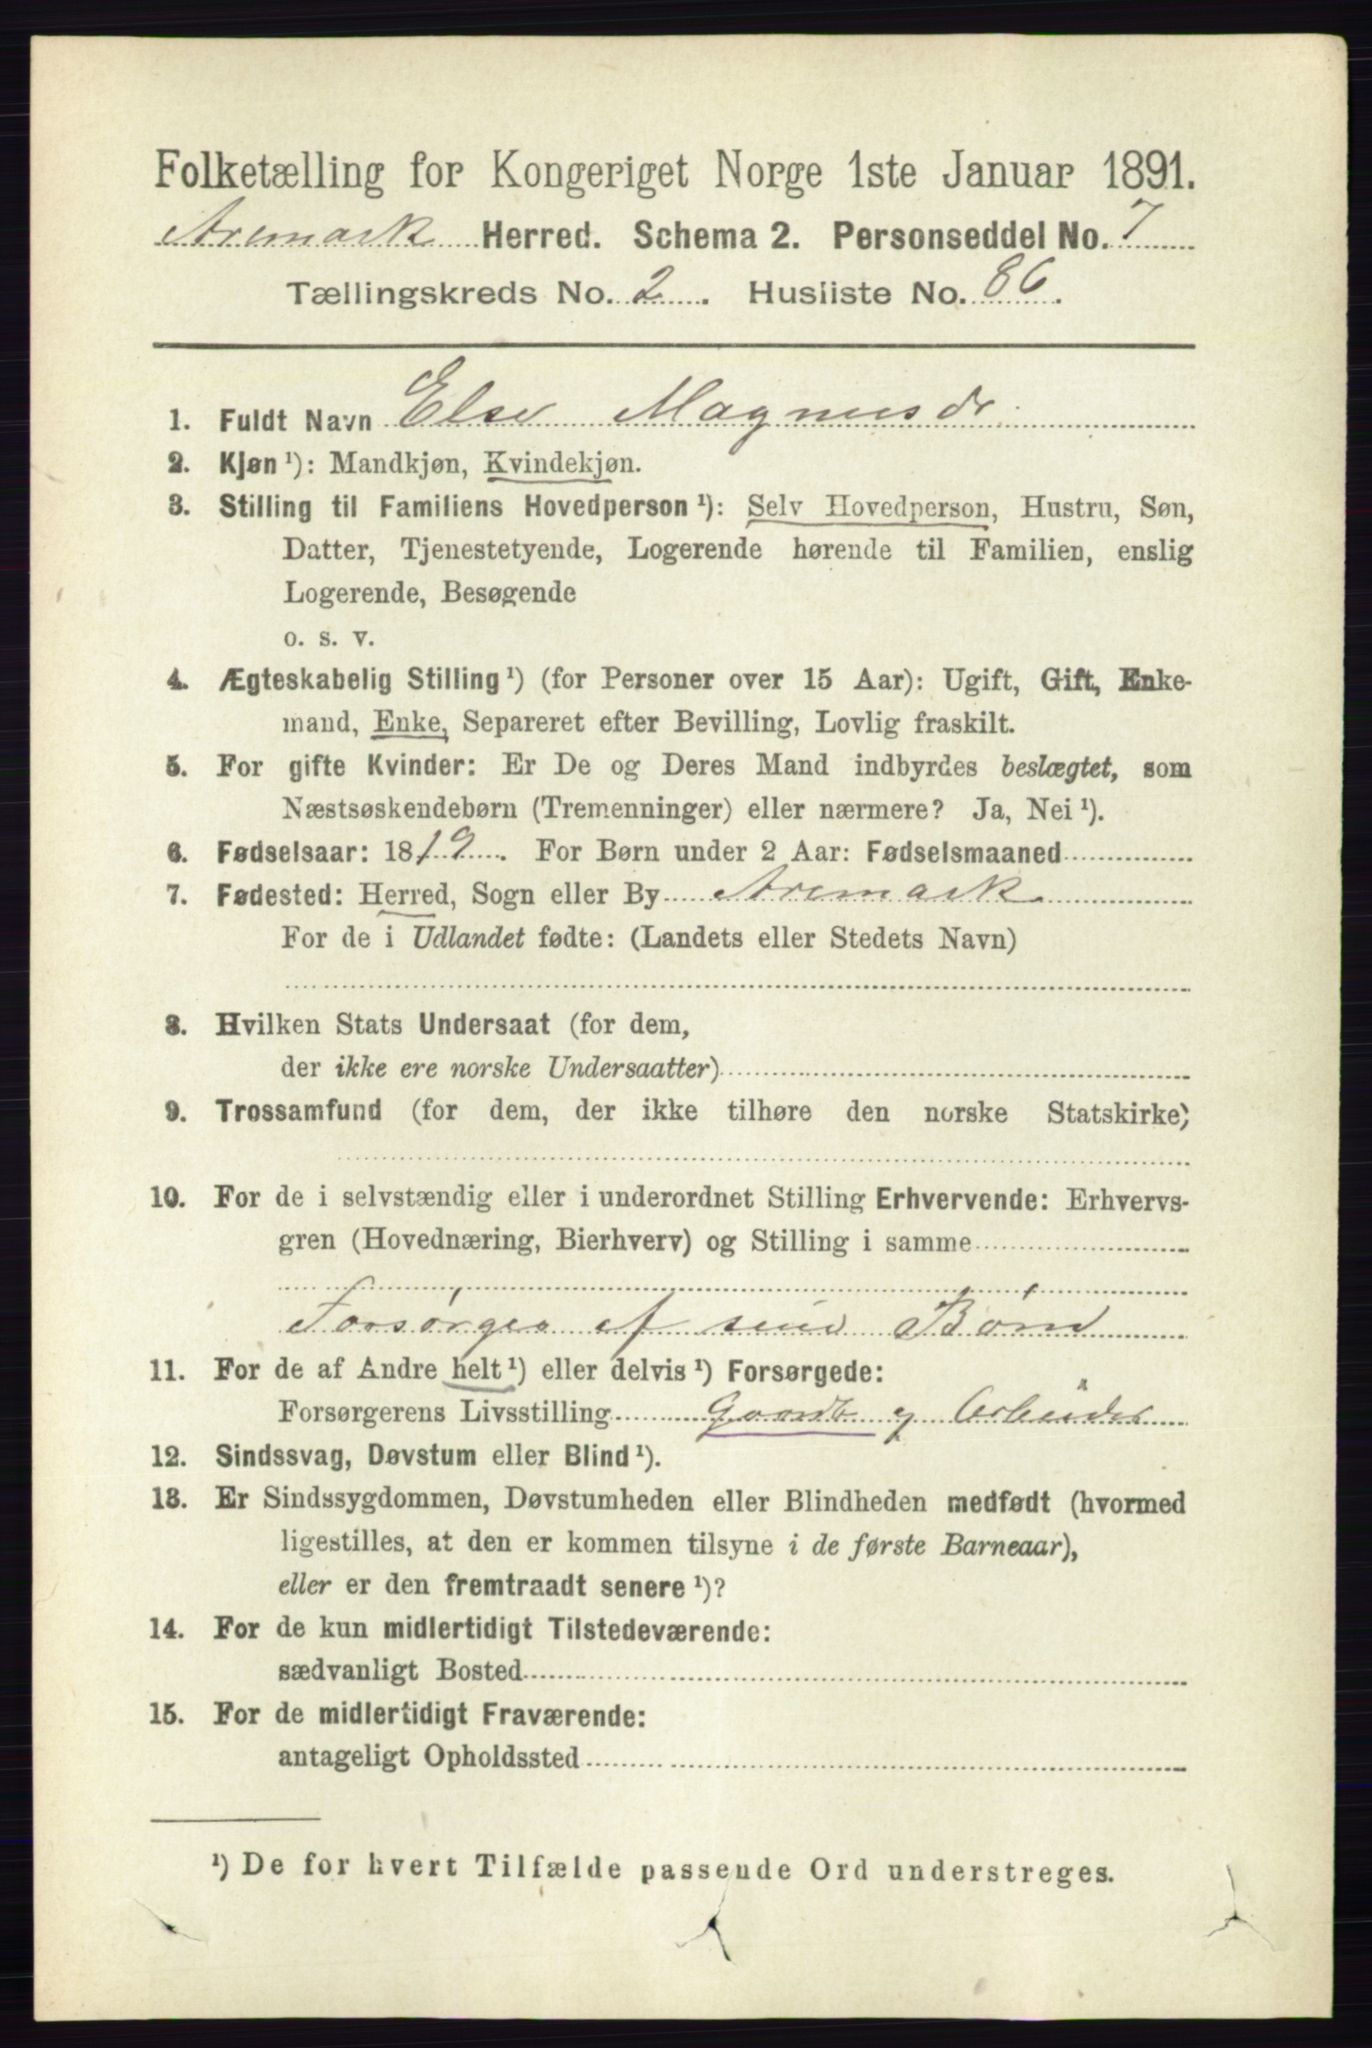 Folketælling for Kongeriget Norge 1ste Januar 1891.
Aremark Herred. Schema 2. Personseddel No. 7
Tællingskreds No. 2. Husliste No. 86.
1. Fuldt Navn Else Magnusdr.
2. Kjøn ¹): Mandkjøn, Kvindekjøn.
3. Stilling til Familiens Hovedperson ¹): Selv Hovedperson, Hustru, Søn,
Datter, Tjenestetyende, Logerende hørende til Familien, enslig
Logerende, Besøgende
o. s. v.
4. Ægteskabelig Stilling ¹) (for Personer over 15 Aar): Ugift, Gift, Enke-
mand, Enke, Separeret efter Bevilling, Lovlig fraskilt.
5. For gifte Kvinder: Er De og Deres Mand indbyrdes beslægtet, som
Næstsøskendebørn (Tremenninger) eller nærmere? Ja, Nei ¹).
6. Fødselsaar: 1819. For Børn under 2 Aar: Fødselsmaaned
7. Fødested: Herred, Sogn eller By Aremark
For de i Udlandet fødte: (Landets eller Stedets Navn)
8. Hvilken Stats Undersaat (for dem,
der ikke ere norske Undersaatter)
9. Trossamfund (for dem, der ikke tilhøre den norske Statskirke)
10. For de i selvstændig eller i underordnet Stilling Erhvervende: Erhvervs-
gren (Hovednæring, Bierhverv) og Stilling i samme
Forsørges af sine Børn
11. For de af Andre helt ¹) eller delvis ¹) Forsørgede:
Forsørgerens Livsstilling Gaardb og Arbeider
12. Sindssvag, Døvstum eller Blind ¹).
13. Er Sindssygdommen, Døvstumheden eller Blindheden medfødt (hvormed
ligestilles, at den er kommen tilsyne i de første Barneaar),
eller er den fremtraadt senere ¹)?
14. For de kun midlertidigt Tilstedeværende:
sædvanligt Bosted
15. For de midlertidigt Fraværende:
antageligt Opholdssted
¹) De for hvert Tilfælde passende Ord understreges.